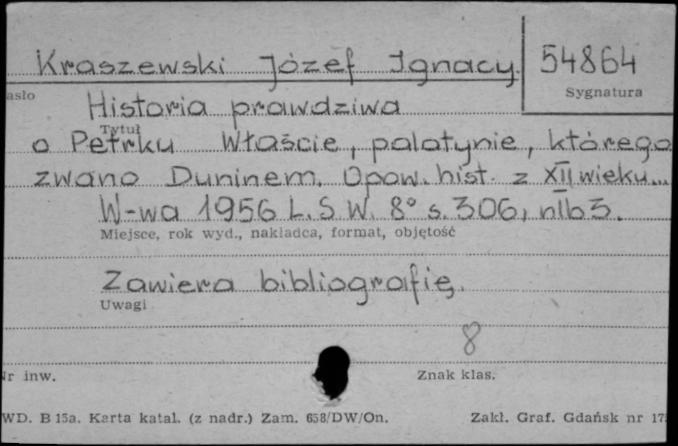 Kraszewski Józef Ignacy. 54864
asło Sygnatura
Historia prawdziwa
Tytuł
o Petrku Właście, palatynie, którego
zwano Duninem. Opow. hist. z XII wieku...
W-wa 1956 L.S.W. 8° s. 306, nlb 3.
Miejsce, rok wyd., nakładca, format, objętość
Zawiera bibliografię.
Uwagi
8
Nr inw. Znak klas.
WD. B 15a. Karta katal. (z nadr.) Zam. 658/DW/On. Zakł. Graf. Gdańsk nr 17